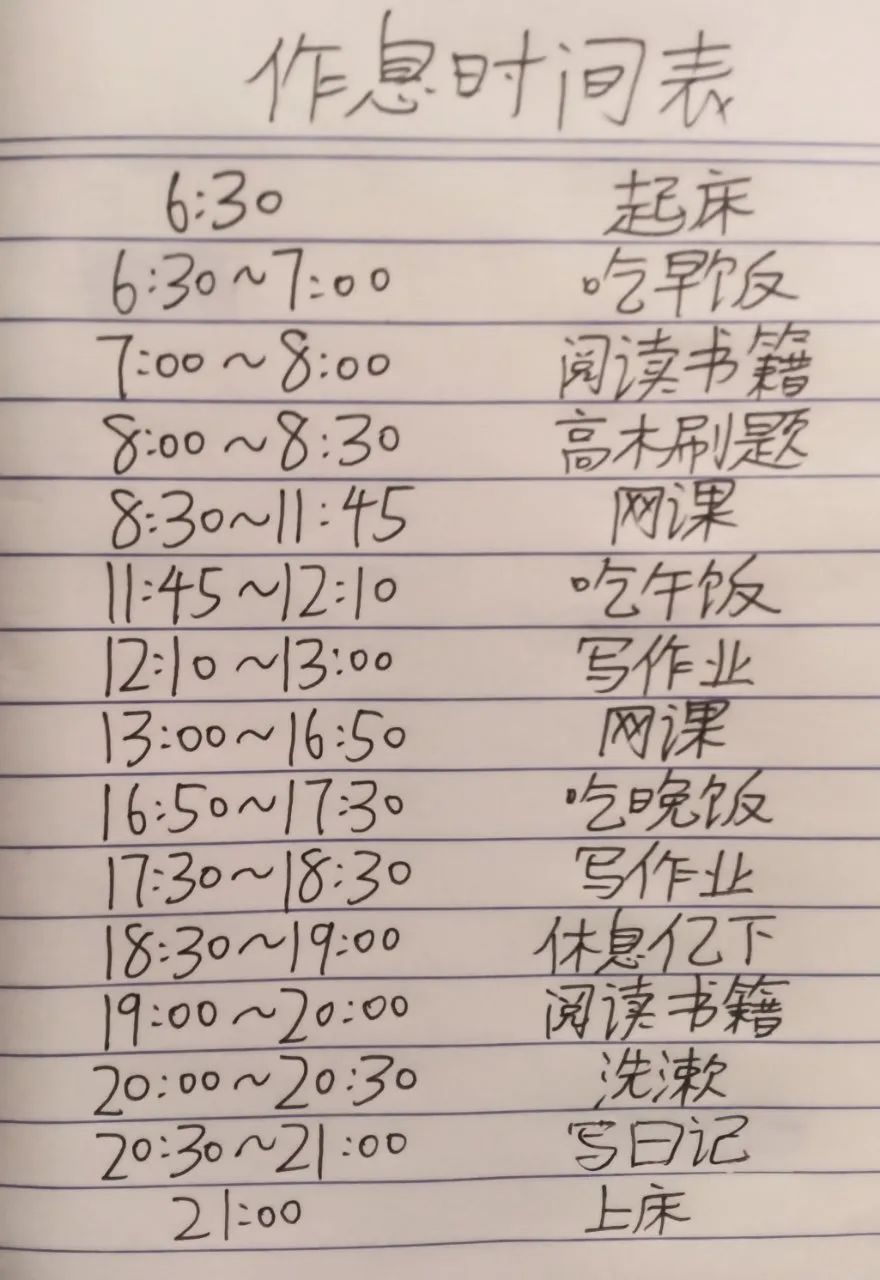 作息时间表
6:30 起床
6:30~7:00 吃早饭
7:00~8:00 阅读书籍
8:00~8:30 高木刷题
8:30~11:45 网课
11:45~12:10 吃午饭
12:10~13:00 写作业
13:00~16:50 网课
16:50~17:30 吃晚饭
17:30~18:30 写作业
18:30~19:00 休息亿下
19:00~20:00 阅读书籍
20:00~20:30 洗漱
20:30~21:00 写日记
21:00 上床